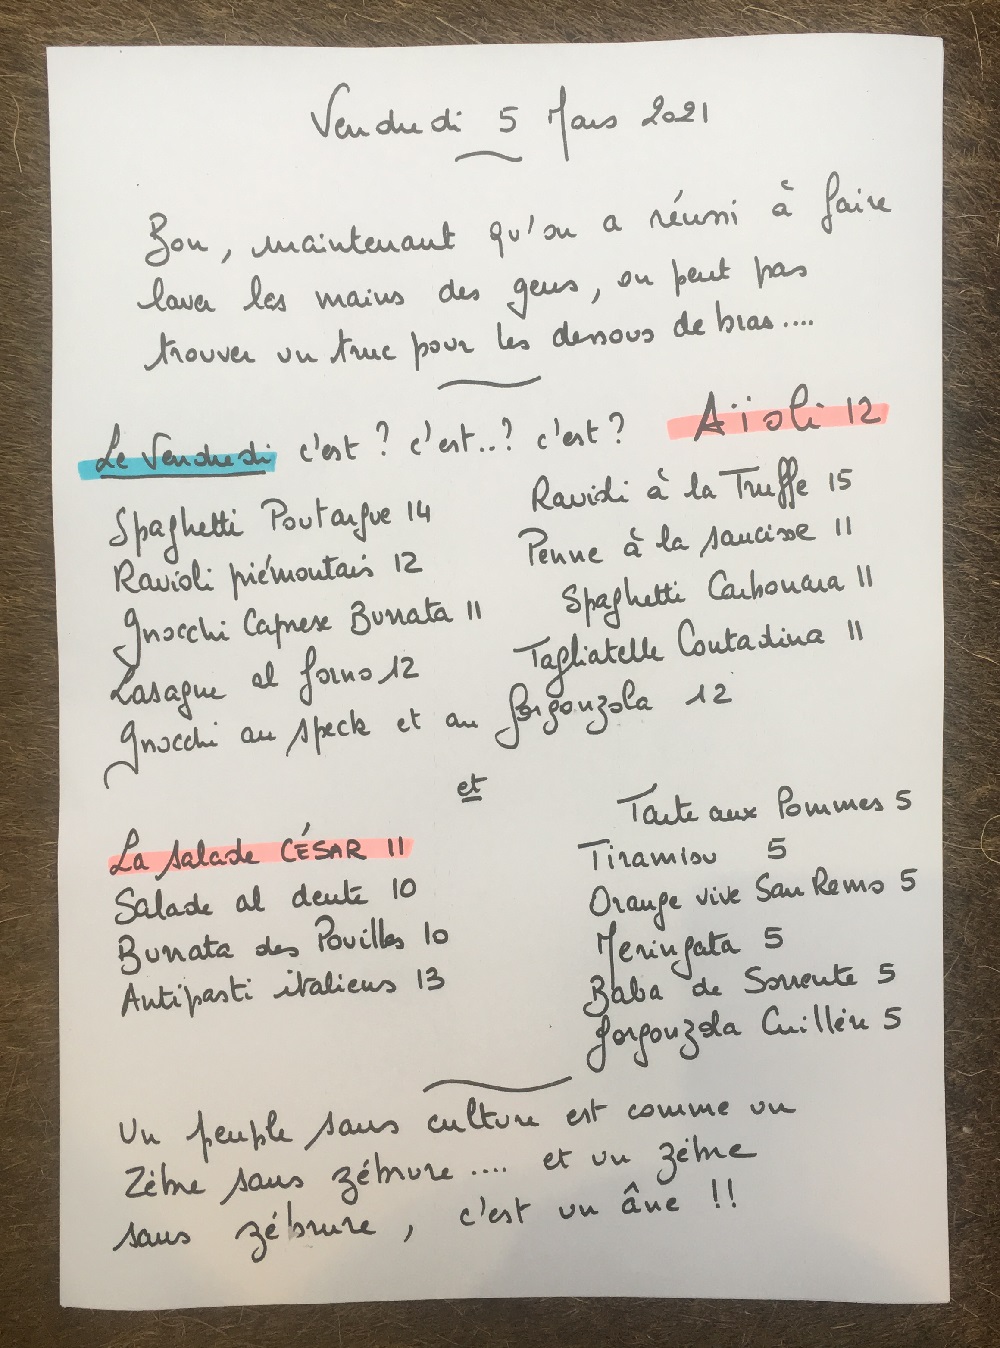 Vendredi 5 Mars 2021
Bon, maintenant qu'on a réussi à faire
laver les mains des gens, on peut pas
trouver un truc pour les dessous de bras....
Le Vendredi c'est ? c'est..? c'est ? Aïoli 12
Spaghetti Poutargue 14
Ravioli piémontais 12
Gnocchi Caprese Burrata 11
Lasagne al forno 12
Gnocchi au speck et au gorgonzola 12
Ravioli à la Truffe 15
Penne à la saucisse 11
Spaghetti Carbonara 11
Tagliatelle Contadina 11
et
La salade CÉSAR 11
Salade al dente 10
Burrata des Pouilles 10
Antipasti italiens 13
Tarte aux Pommes 5
Tiramisu 5
Orange vive San Remo 5
Meringata 5
Baba de Sorrente 5
Gorgonzola Cuillère 5
Un peuple sans culture est comme un
Zèbre sans zébrure .... et un zèbre
sans zébrure, c'est un âne !!